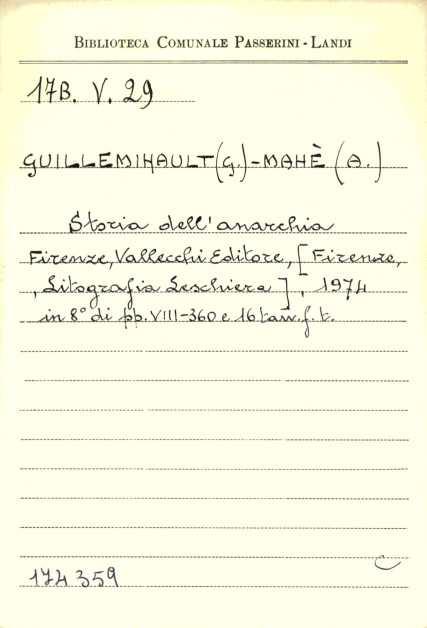 BIBLIOTECA COMUNALE PASSERINI-LANDI
17B. V. 29
GUILLEMIHAULT (G.)-MAHÈ (A.)
Storia dell'anarchia
Firenze, Vallecchi Editore, [Firenze,
, Litografia Leschiera], 1974
in 8° di pp. VIII-360 e 16 tav. f. t.
C
174359